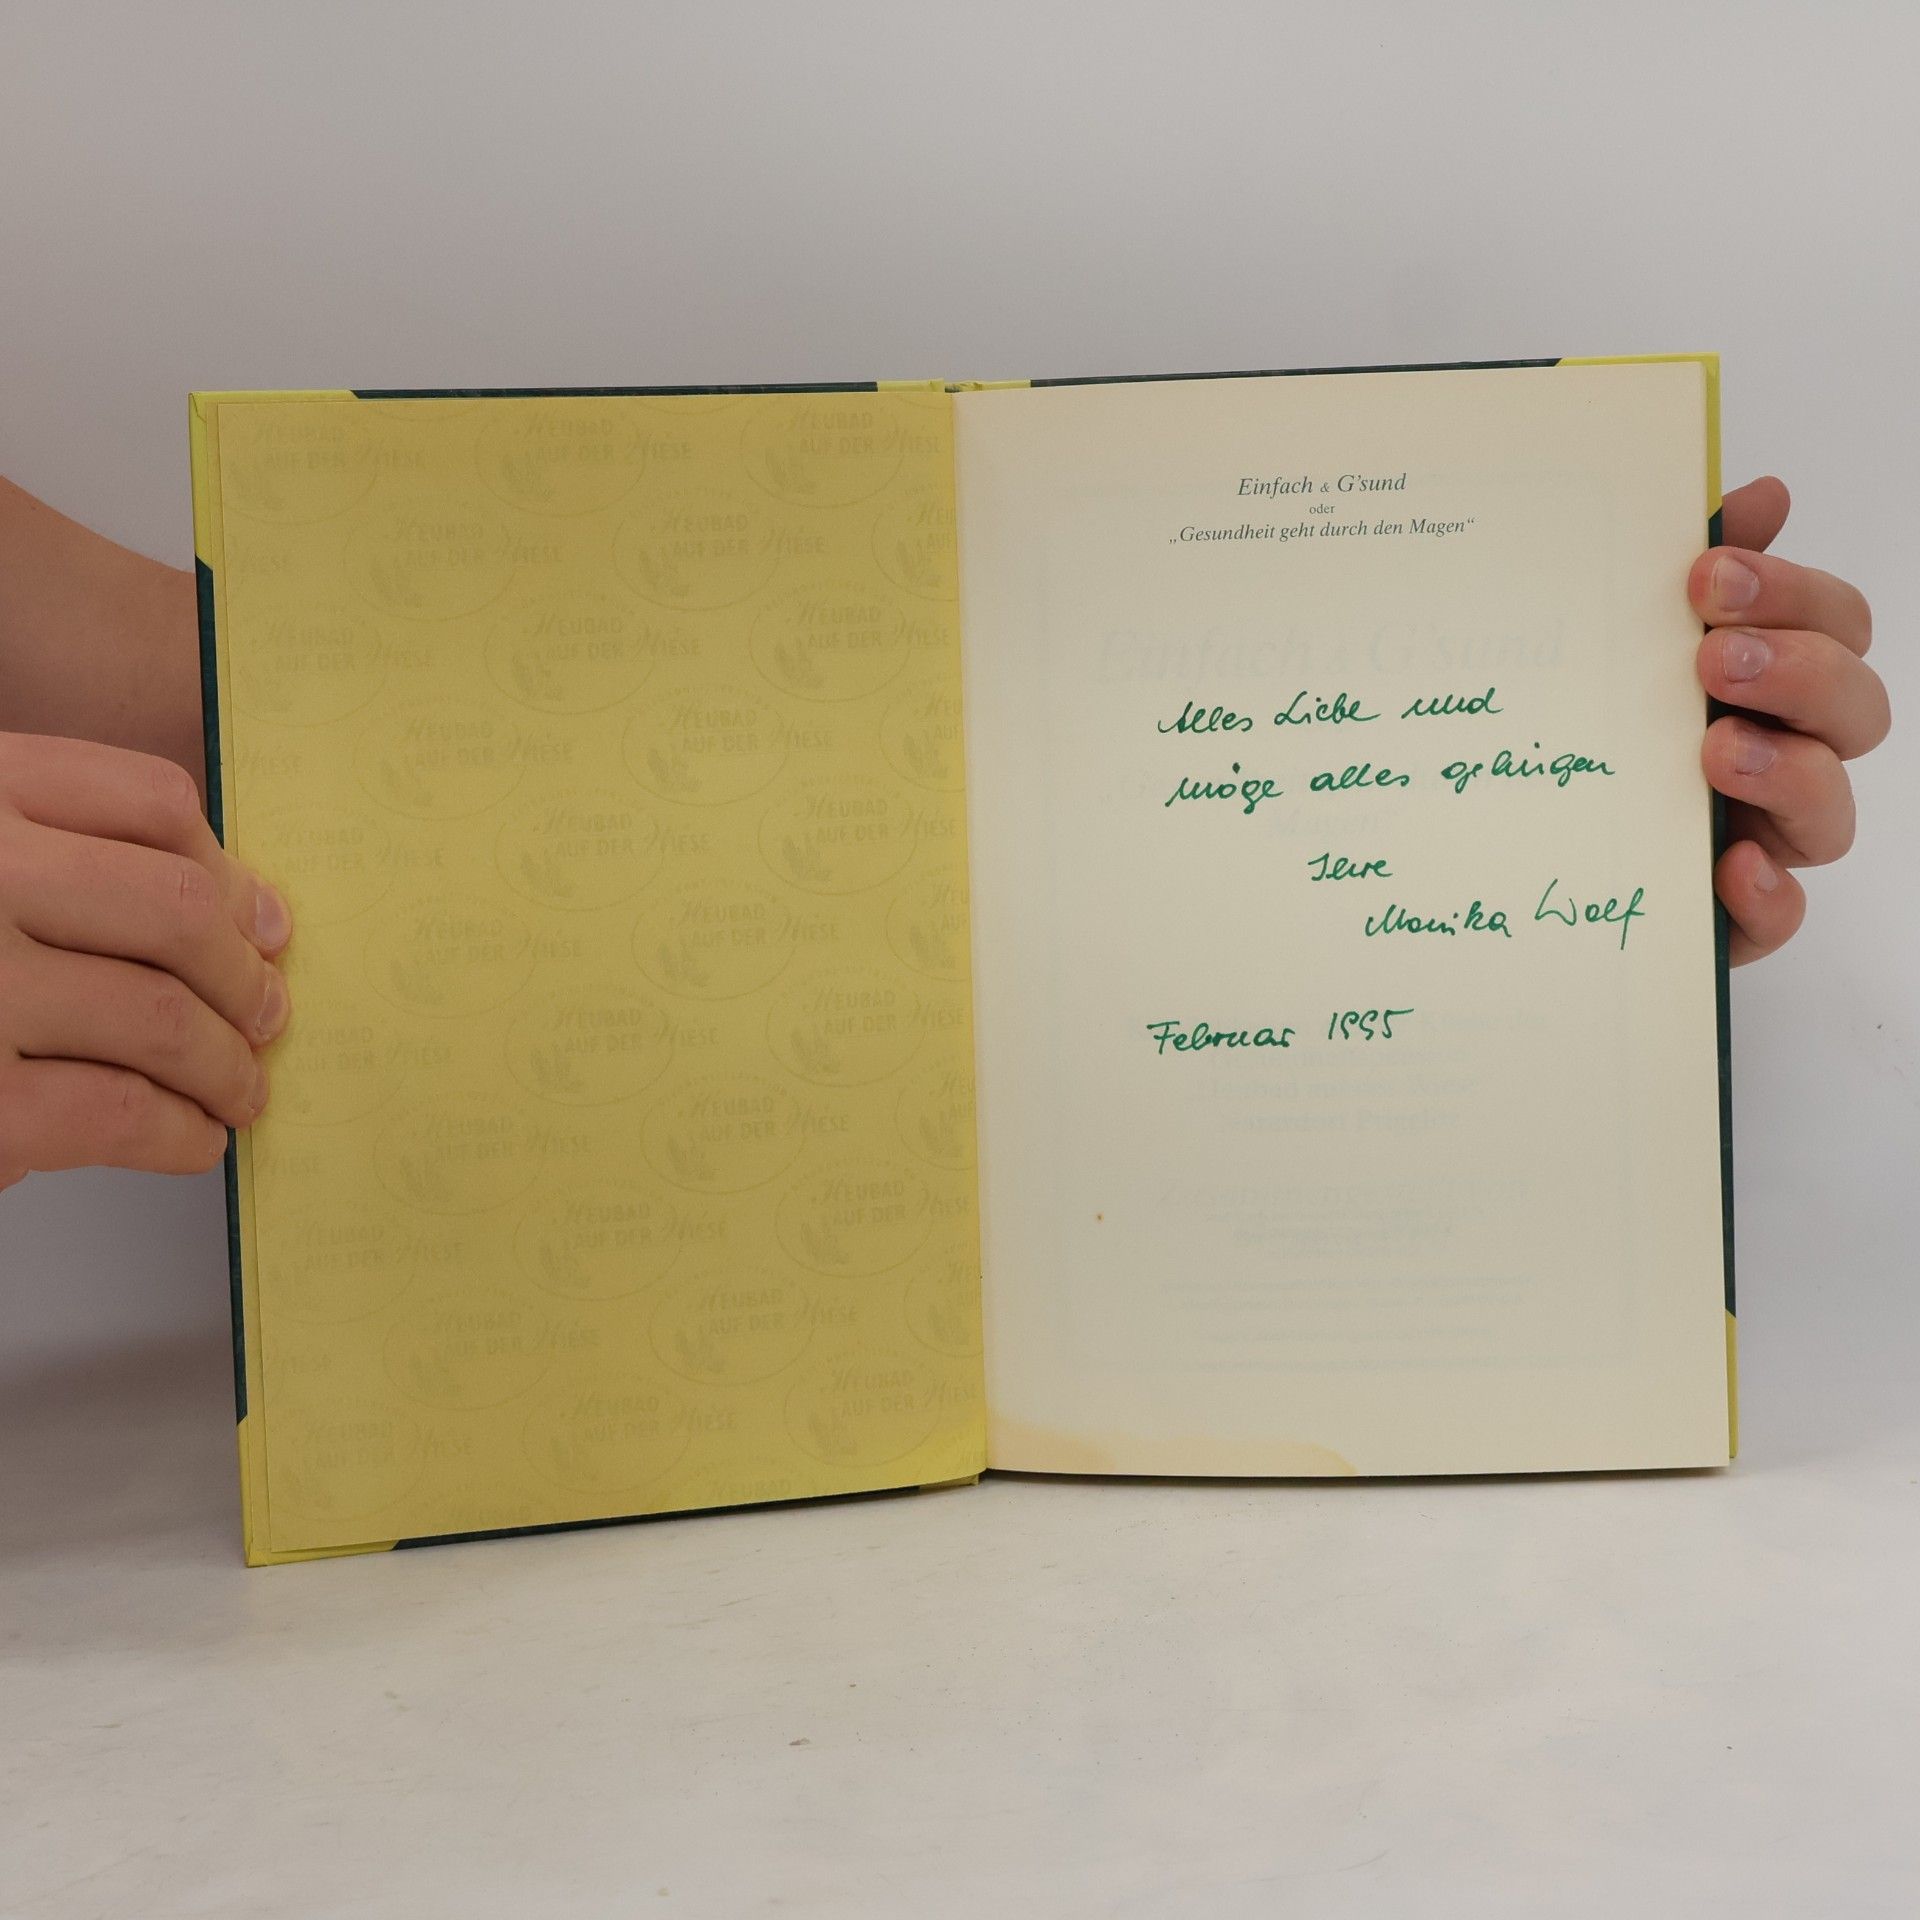 HEUBAD
AUF DER WIESE
Einfach & G'sund
oder
„Gesundheit geht durch den Magen“
Alles Liebe und
möge alles gelingen
Ihre
Monika Wolf
Februar 1995